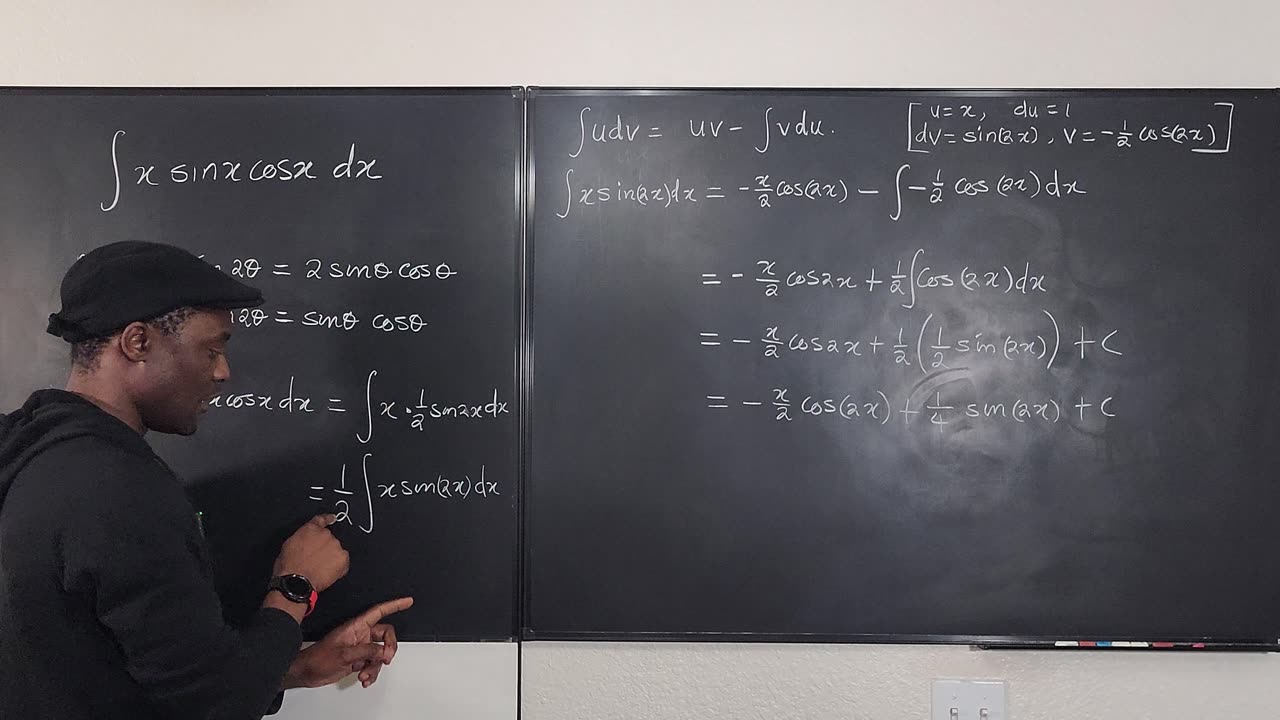 ∫ x sinx cosx dx
2θ = 2 sinθ cosθ
2θ = sinθ cosθ
xcosx dx = ∫ x · 1/2 sin2x dx
= 1/2 ∫ x sin(2x) dx
∫ u dv = uv - ∫ v du.
[u = x, du = 1
dv = sin(2x), v = -1/2 cos(2x)]
∫ x sin(2x) dx = -x/2 cos(2x) - ∫ -1/2 cos(2x) dx
= - x/2 cos2x + 1/2 ∫ cos(2x) dx
= - x/2 cos2x + 1/2 (1/2 sin(2x)) + C
= - x/2 cos(2x) + 1/4 sin(2x) + C